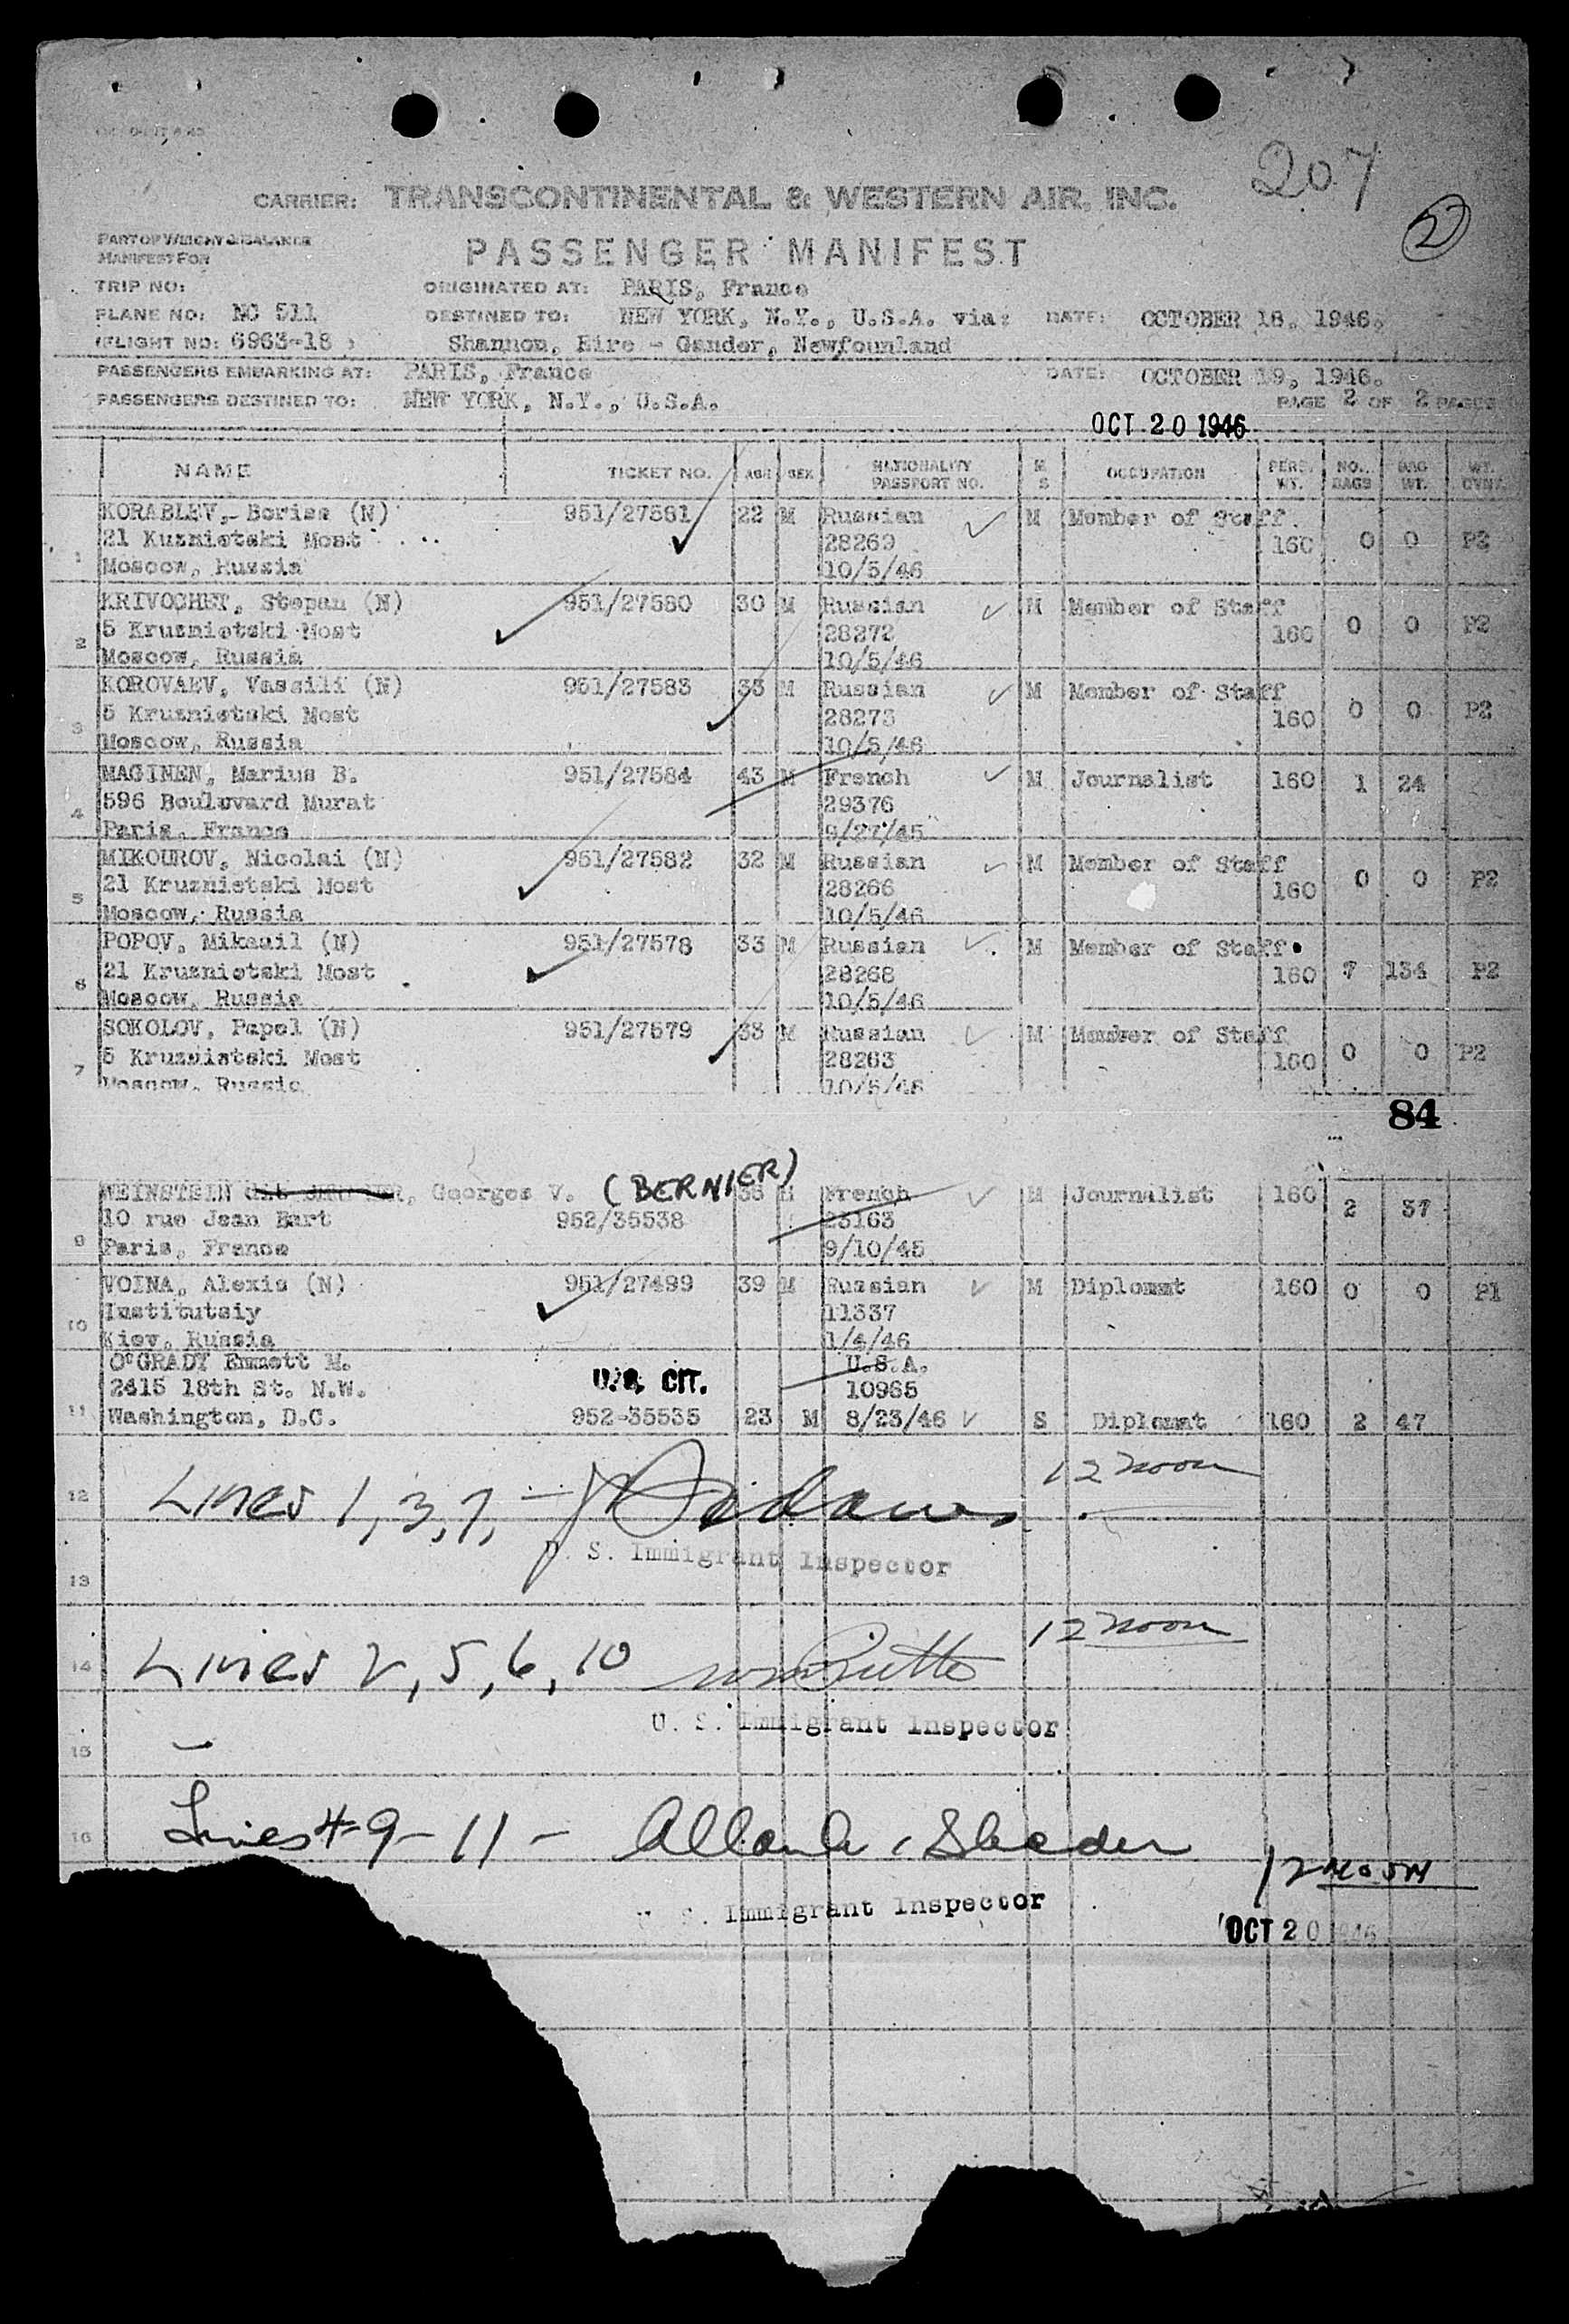 207
2
CARRIER: TRANSCONTINENTAL & WESTERN AIR, INC.
PART OF WEIGHT & BALANCE
MANIFEST FOR
PASSENGER MANIFEST
TRIP NO:
ORIGINATED AT: PARIS, France
PLANE NO: NC 511
DESTINED TO: NEW YORK, N.Y., U.S.A. via: DATE: OCTOBER 18, 1946.
(FLIGHT NO: 6963-18 )
Shannon, Eire - Gander, Newfounland
PASSENGERS EMBARKING AT: PARIS, France DATE: OCTOBER 19, 1946.
PASSENGERS DESTINED TO: NEW YORK, N.Y., U.S.A. PAGE 2 OF 2 PAGES
OCT 20 1946
NAME TICKET NO. AGE SEX NATIONALITY PASSPORT NO. M S OCCUPATION PERS. WT. NO. BAGS BAG WT.
KORABLEV, Boriss (N) 951/27581 22 M Russian M Member of Staff
21 Kuznietski Most 28269 160 0 0 P2
1 Moscow, Russia 10/5/46
KRIVOCHET, Stepan (N) 951/27580 30 M Russian M Member of Staff
5 Kruznietski Most 28272 160 0 0 P2
2 Moscow, Russia 10/5/46
KOROVAEV, Vassili (N) 951/27583 33 M Russian M Member of Staff
5 Kruznietski Most 28273 160 0 0 P2
3 Moscow, Russia 10/5/46
MAGINEN, Marius B. 951/27584 43 M French M Journalist 160 1 24
596 Boulevard Murat 29376
4 Paris, France 9/27/45
MIKOUROV, Nicolai (N) 951/27582 32 M Russian M Member of Staff
21 Kruznietski Most 28266 160 0 0 P2
5 Moscow, Russia 10/5/46
POPOV, Mikaail (N) 951/27578 33 M Russian M Member of Staff
21 Kruznietski Most 28268 160 7 134 P2
6 Moscow, Russia 10/5/46
SOKOLOV, Papel (N) 951/27579 33 M Russian M Member of Staff
5 Kruznietski Most 28263 160 0 0 P2
7 Moscow, Russia 10/5/46
84
WEINSTEIN dit, Georges V. (BERNIER) M French M Journalist 160 2 37
10 rue Jean Bart 952/35538 23163
9 Paris, France 9/10/45
VOINA, Alexis (N) 951/27499 39 M Russian M Diplomat 160 0 0 P1
Institutsiy 11337
10 Kiev, Russia 1/4/46
O'GRADY Emmett M. U.S.A.
2415 18th St. N.W. U.S. CIT. 10965
11 Washington, D.C. 952-35535 23 M 8/23/46 S Diplomat 160 2 47
12 Lines 1, 3, 7, - 12 noon
U. S. Immigrant Inspector
13
14 Lines 2, 5, 6, 10 12 noon
U. S. Immigrant Inspector
15
16 Lines # 9-11 -
12 noon
U. S. Immigrant Inspector
OCT 20 1946